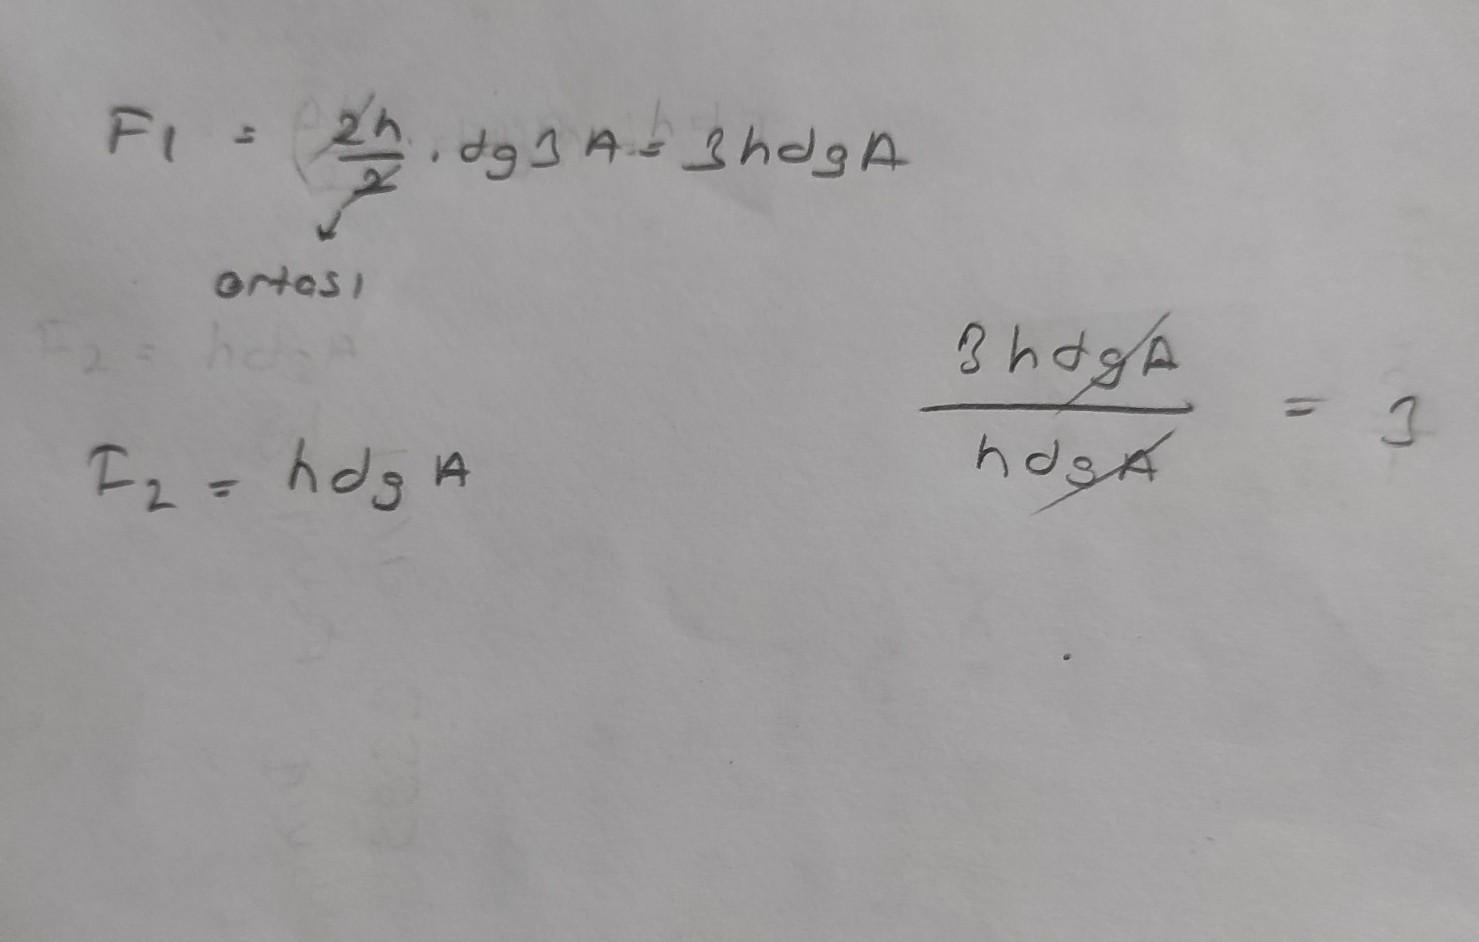 F1 = 2h/2 . dg3A = 3hdgA
ortası
F2 = hdgA
F2 = hdgA
3hdgA/hdgA = 3